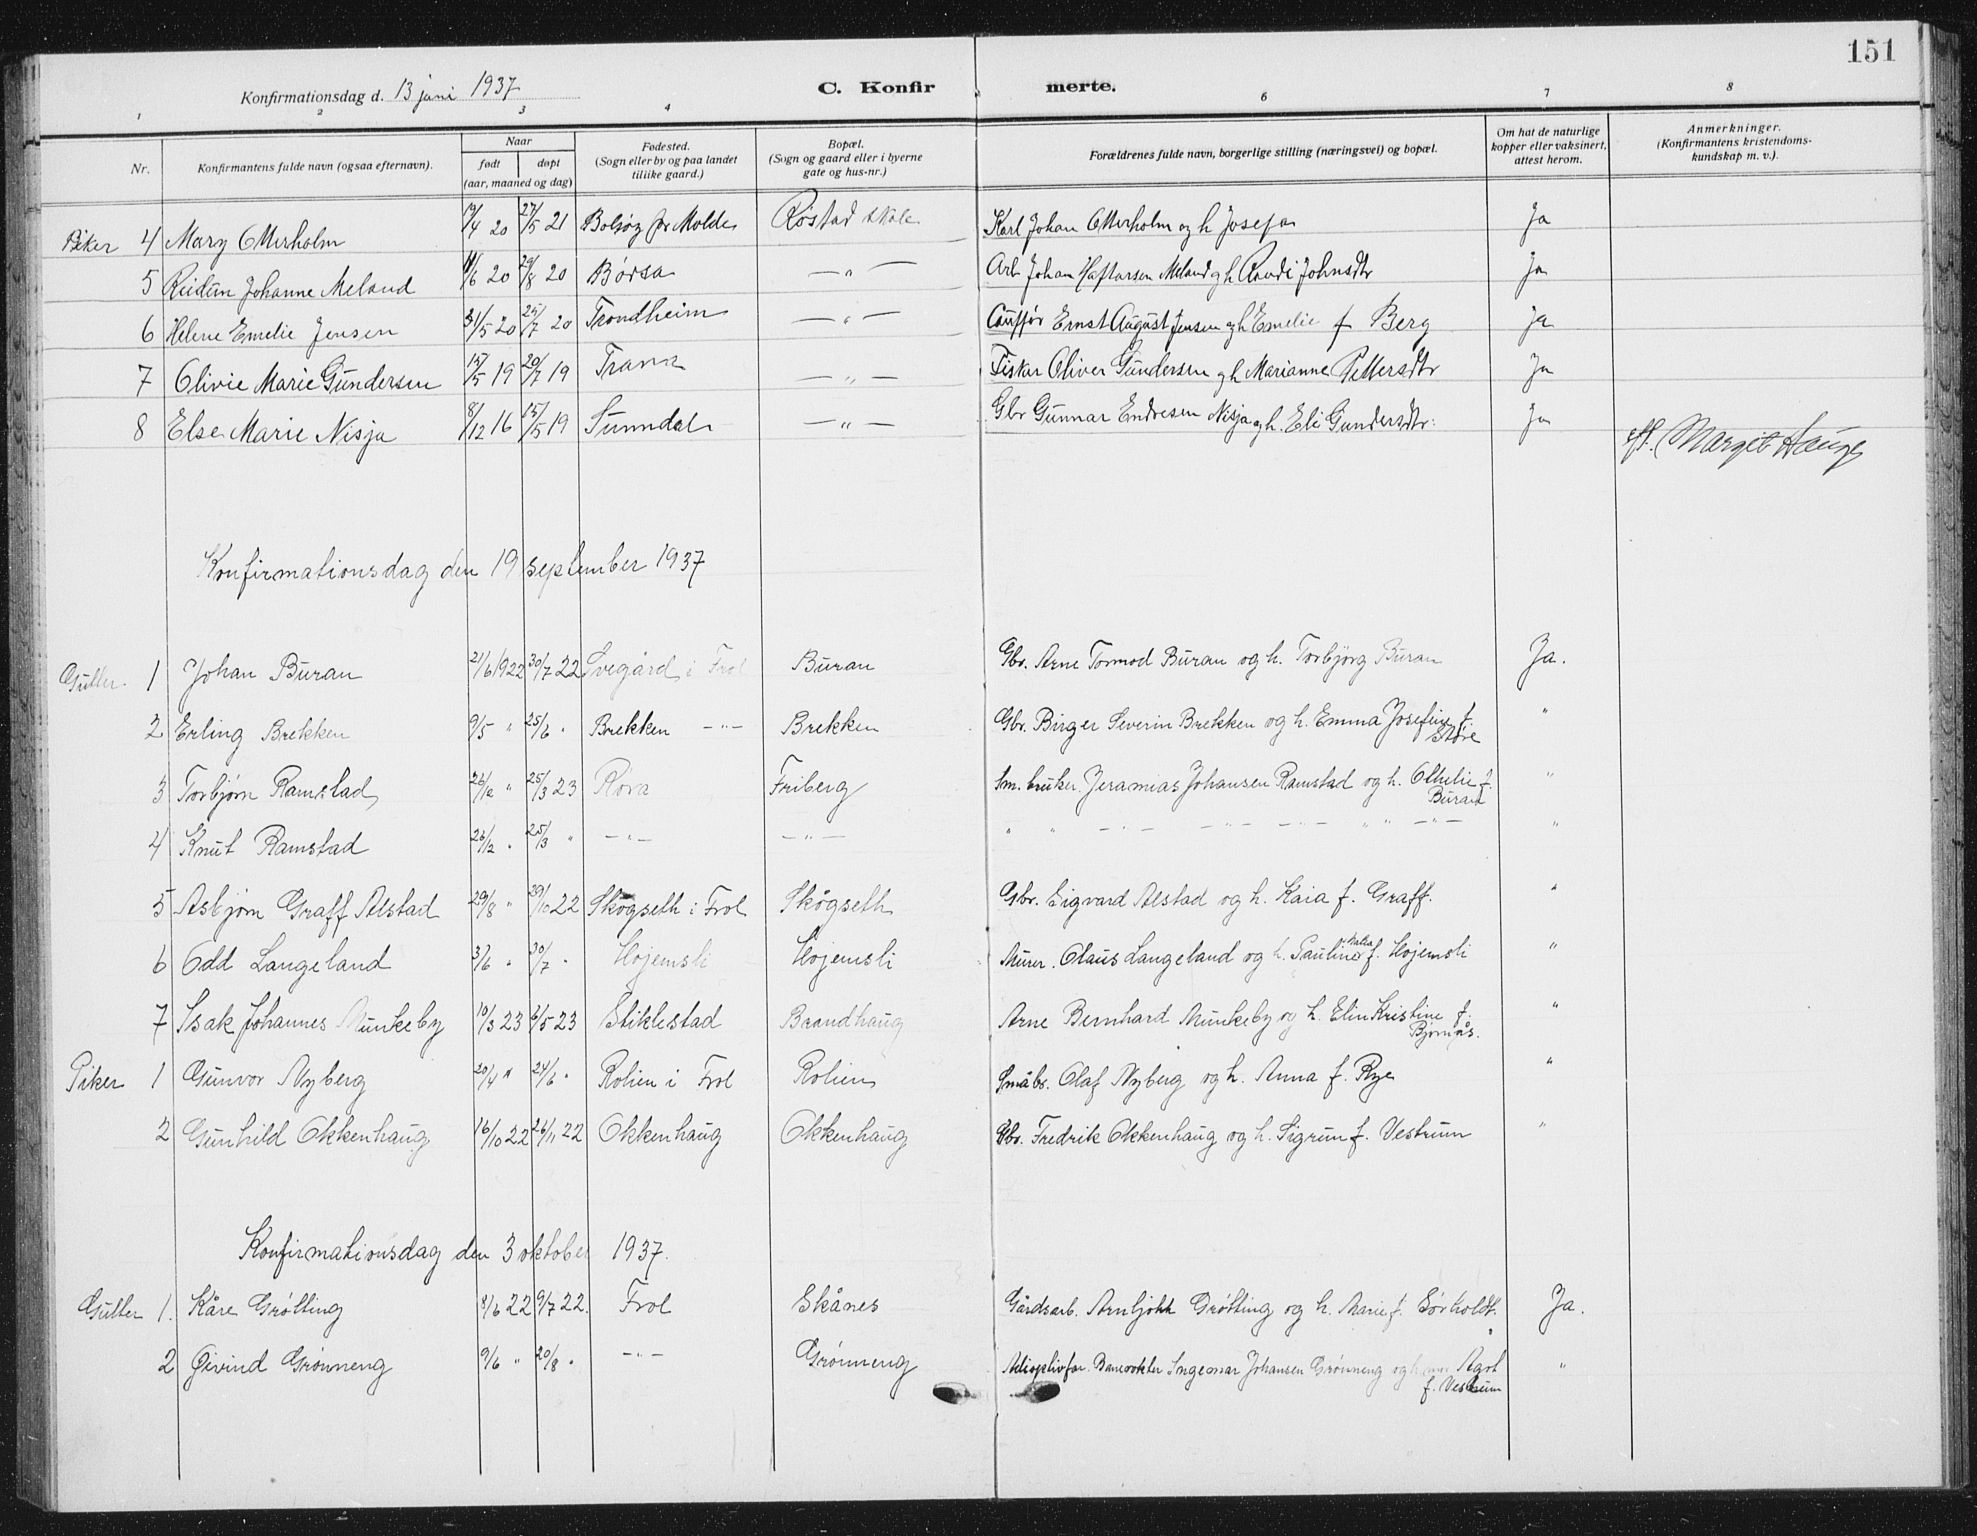 151
Konfirmationsdag d. 13 juni 1937
C. Konfirmerte.
1 2 3 4 6 7 8
Nr. Konfirmantens fulde navn (ogsaa efternavn). Naar født døpt (aar, maaned og dag) Fødested. (Sogn eller by og paa landet tillike gaard.) Bopæl. (Sogn og gaard eller i byerne gate og hus-nr.) Forældrenes fulde navn, borgerlige stilling (næringsvei) og bopæl. Om hat de naturlige kopper eller vaksinert, attest herom. Anmerkninger. (Konfirmantens kristendomskundskap m. v.).
Piker 4 Mary Otterholm 19/4 20 27/5 21 Bolsøy pr Molde Røstad skole Karl Johan Otterholm og h Josefa Ja
5 Reidun Johanne Meland 11/6 20 29/8 20 Børsa — " — Arb Johan Haftorsen Meland og h Randi Johnsdtr Ja
6 Helene Emelie Jensen 31/5 20 25/7 20 Trondheim — " — Cauffør Ernst August Jensen og h Emelie f Berg Ja
7 Olivie Marie Gundersen 15/5 19 20/7 19 Trana — " — Fisker Oliver Gundersen og h Marianne Pettersdtr Ja
8 Else Marie Nisja 8/12 16 15/5 19 Sunndal — " — Gbr Gunnar Endresen Nisja og h. Eli Gundersdtr. Ja
Margit Hauge
Konfirmationsdag den 19 september 1937
Gutter 1 Johan Buran 21/6 1922 30/7 22 Svegård i Frol Buran Gbr. Arne Tormod Buran og h. Torbjørg Buran Ja.
2 Erling Brekken 9/5 " 25/6 " Brekken — " — Brekken Gbr. Birger Severin Brekken og h. Emma Josefine f. Støre "
3 Torbjørn Ramstad 26/12 " 25/3 23 Rora Friberg Sm. bruker Jeramias Johansen Ramstad og h. Othelie f. Buran "
4 Knut Ramstad 26/12 " 25/3 " — " — — " — " " — " — — " — — " — " " — " — "
5 Asbjørn Graff Alstad 29/8 " 29/10 22 Skogseth i Frol Skogseth Gbr. Sigvard Alstad og h. Kaia f. Graff. "
6 Odd Langeland 3/6 " 30/7 " Hojemsli Hojemsli Murer. Olaus Langeland og h. Pauline f. Hojemsli "
7 Isak Johannes Munkeby 10/3 23 6/5 23 Stiklestad Brandhaug Arne Bernhard Munkeby og h. Elin Kristine f. Bjørnås. "
Piker 1 Gunvor Nyberg 20/4 " 24/6 " Rolien i Frol Rolien Småbr. Olaf Nyberg og h. Anna f. Rye "
2 Gunhild Okkenhaug 16/10 22 26/11 22 Okkenhaug Okkenhaug Gbr. Fredrik Okkenhaug og h. Sigrun f. Vestrum "
Konfirmationsdag den 3 oktober 1937.
Gutter 1. Kåre Grøtting 8/6 22 9/7 22. Frol Skånes Gårdsarb. Arnljokk Grøtting og h. Marie f. Sørholdt. Ja.
2 Øivind Grønneng 9/6 " 20/8 " — " — Grønneng Adioptivfar. Banevokter Ingemar Johansen Grønneng og h Agot f. Vestrum "